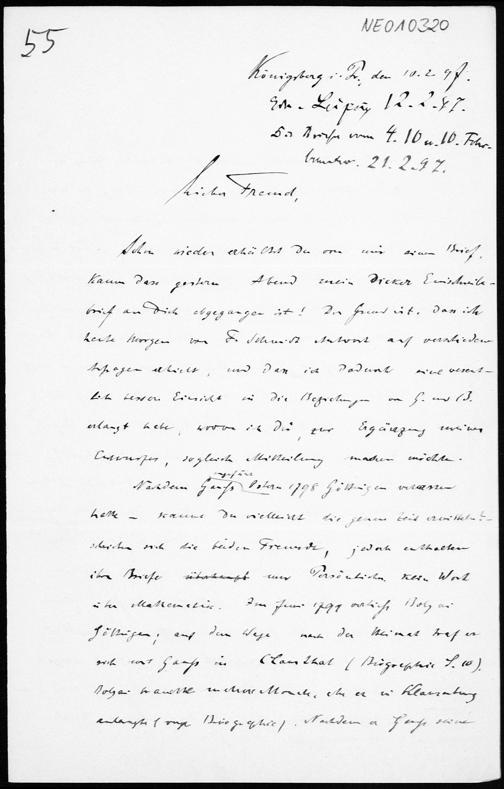 NE010320
55
Königsberg i. Pr., den 10.2.97.
Leipzig 12.2.97.
Die Briefe vom 4. 10 u. 10. Febr.
21.2.97.
Lieber Freund,
Schon wieder erhältst Du von mir einen Brief,
kaum dass gestern Abend mein dicker Einschreibe-
brief an Dich abgegangen ist! Der Grund ist, dass ich
heute Morgen von F. Schmidt Antwort auf verschiedene
Anfragen erhielt, und dass ich dadurch eine wesent-
lich bessere Einsicht in die Beziehungen von G. und B.
erlangt habe, wovon ich Dir, zur Ergänzung meines
Entwurfes, sogleich Mitteilung machen möchte.
Nachdem Gauss ungefähr Ostern 1798 Göttingen verlassen
hatte – kannst Du vielleicht die genaue Zeit ermitteln? –
schrieben sich die beiden Freunde, jedoch enthalten
ihre Briefe überhaupt nur Persönliches, kein Wort
über Mathematik. Im Juni 1799 verliess Bolyai
Göttingen; auf dem Wege nach der Heimat traf er
sich mit Gauss in Clausthal (Biographie S. ).
Bolyai wanderte mehrere Monate, ehe er in Klausenburg
anlangte (vergl. Biographie). Nachdem er Gauss seine